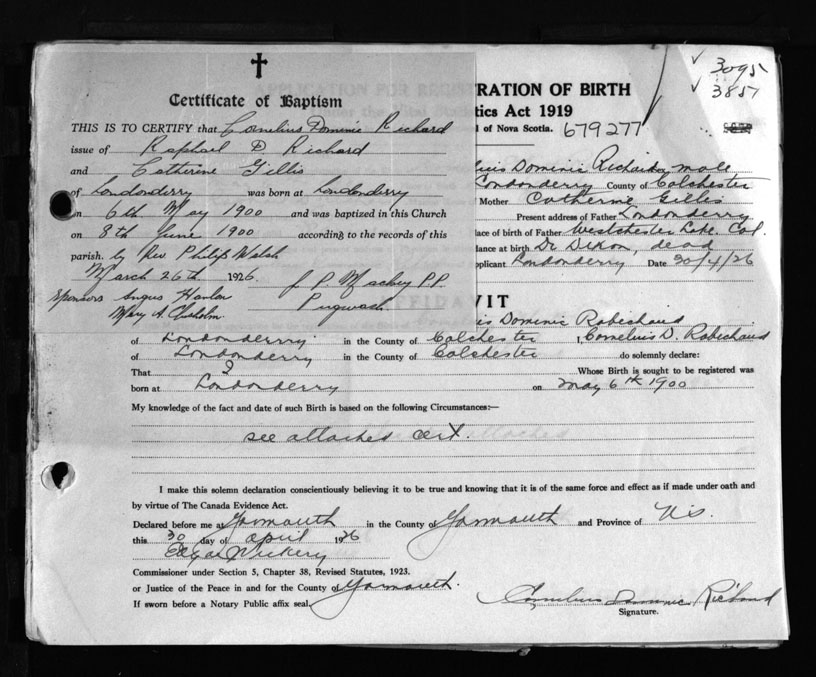 Certificate of Baptism
THIS IS TO CERTIFY that Cornelius Dominic Richard
issue of Raphael D Richard
and Catherine Gillis
of Londonderry was born at Londonderry
on 6th May 1900 and was baptized in this Church
on 8th June 1900 according to the records of this
parish. by Rev Philip Walsh
March 26th 1926 J. P. Mackey P.P.
Sponsors Angus Hanlon Pugwash
Mary A. Chisholm
TRATION OF BIRTH
tics Act 1919
of Nova Scotia. 679277
3095
3857
lius Dominic Richard male
Londonderry County of Colchester
Mother Catherine Gillis
Present address of Father Londonderry
lace of birth of Father Westchester Lake. Col.
dance at birth Dr Dixon, dead
pplicant Londonderry Date 30/4/26
AFFIDAVIT
lius Dominic Robichaud
of Londonderry in the County of Colchester I, Cornelius D. Robichaud
of Londonderry in the County of Colchester do solemnly declare:
That I Whose Birth is sought to be registered was
born at Londonderry on May 6th 1900
My knowledge of the fact and date of such Birth is based on the following Circumstances:—
see attached cert.
I make this solemn declaration conscientiously believing it to be true and knowing that it is of the same force and effect as if made under oath and
by virtue of The Canada Evidence Act.
Declared before me at Yarmouth in the County of Yarmouth and Province of N.S.
this 30 day of April 1926
Edgar Vickery
Commissioner under Section 5, Chapter 38, Revised Statutes, 1923.
or Justice of the Peace in and for the County of Yarmouth.
If sworn before a Notary Public affix seal. Cornelius Dominic Richard
Signature.